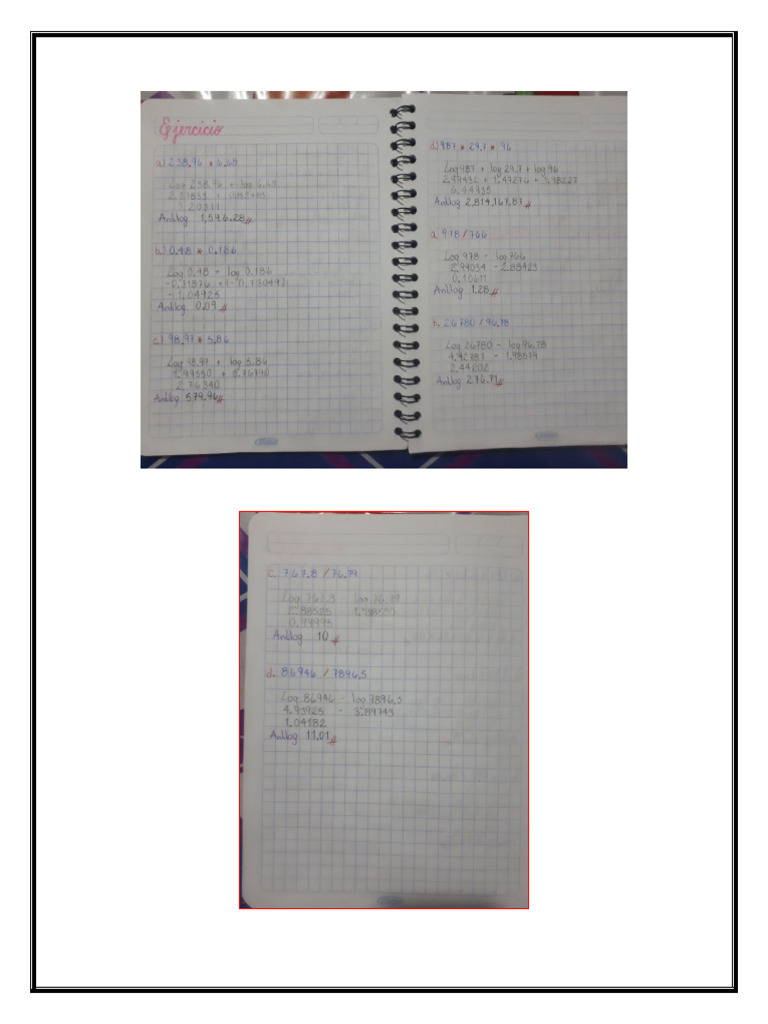 Ejercicio
a) 238.96 * 6.68
Log 238.96 + log 6.68
Antilog 1,596.28
b) 0.48 * 0.186
Log 0.48 - log 0.186
-1.04925
Antilog 0.09
c) 98.97 * 5.86
Log 98.97 + log 5.86
1.99550 + 0.76790
2.76340
Antilog 579.96
d) 987 * 29.7 * 96
Log 987 + log 29.7 + log 96
2.99432 + 1.47276 + 1.98227
6.44935
Antilog 2,814,167.87
a. 978 / 766
Log 978 - log 766
2.99034 - 2.88423
0.10611
Antilog 1.28
b. 26780 / 96.78
Log 26780 - log 96.78
4.42781 - 1.98579
2.44202
Antilog 276.71
c. 767.8 / 76.79
Log 767.8 log 76.79
0.99995
Antilog 10
d. 86946 / 7896.5
Log 86946 - log 7896.5
4.93925 - 3.89743
1.04182
Antilog 11.01